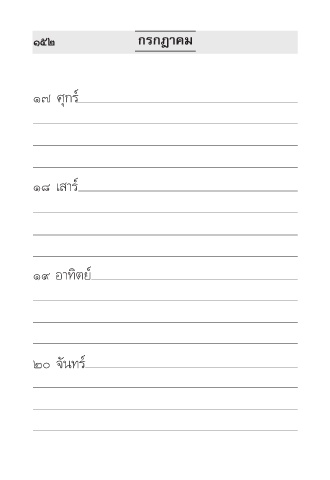 ๑๕๒ กรกฎาคม
๑๗ ศุกร์
๑๘ เสาร์
๑๙ อาทิตย์
๒๐ จันทร์